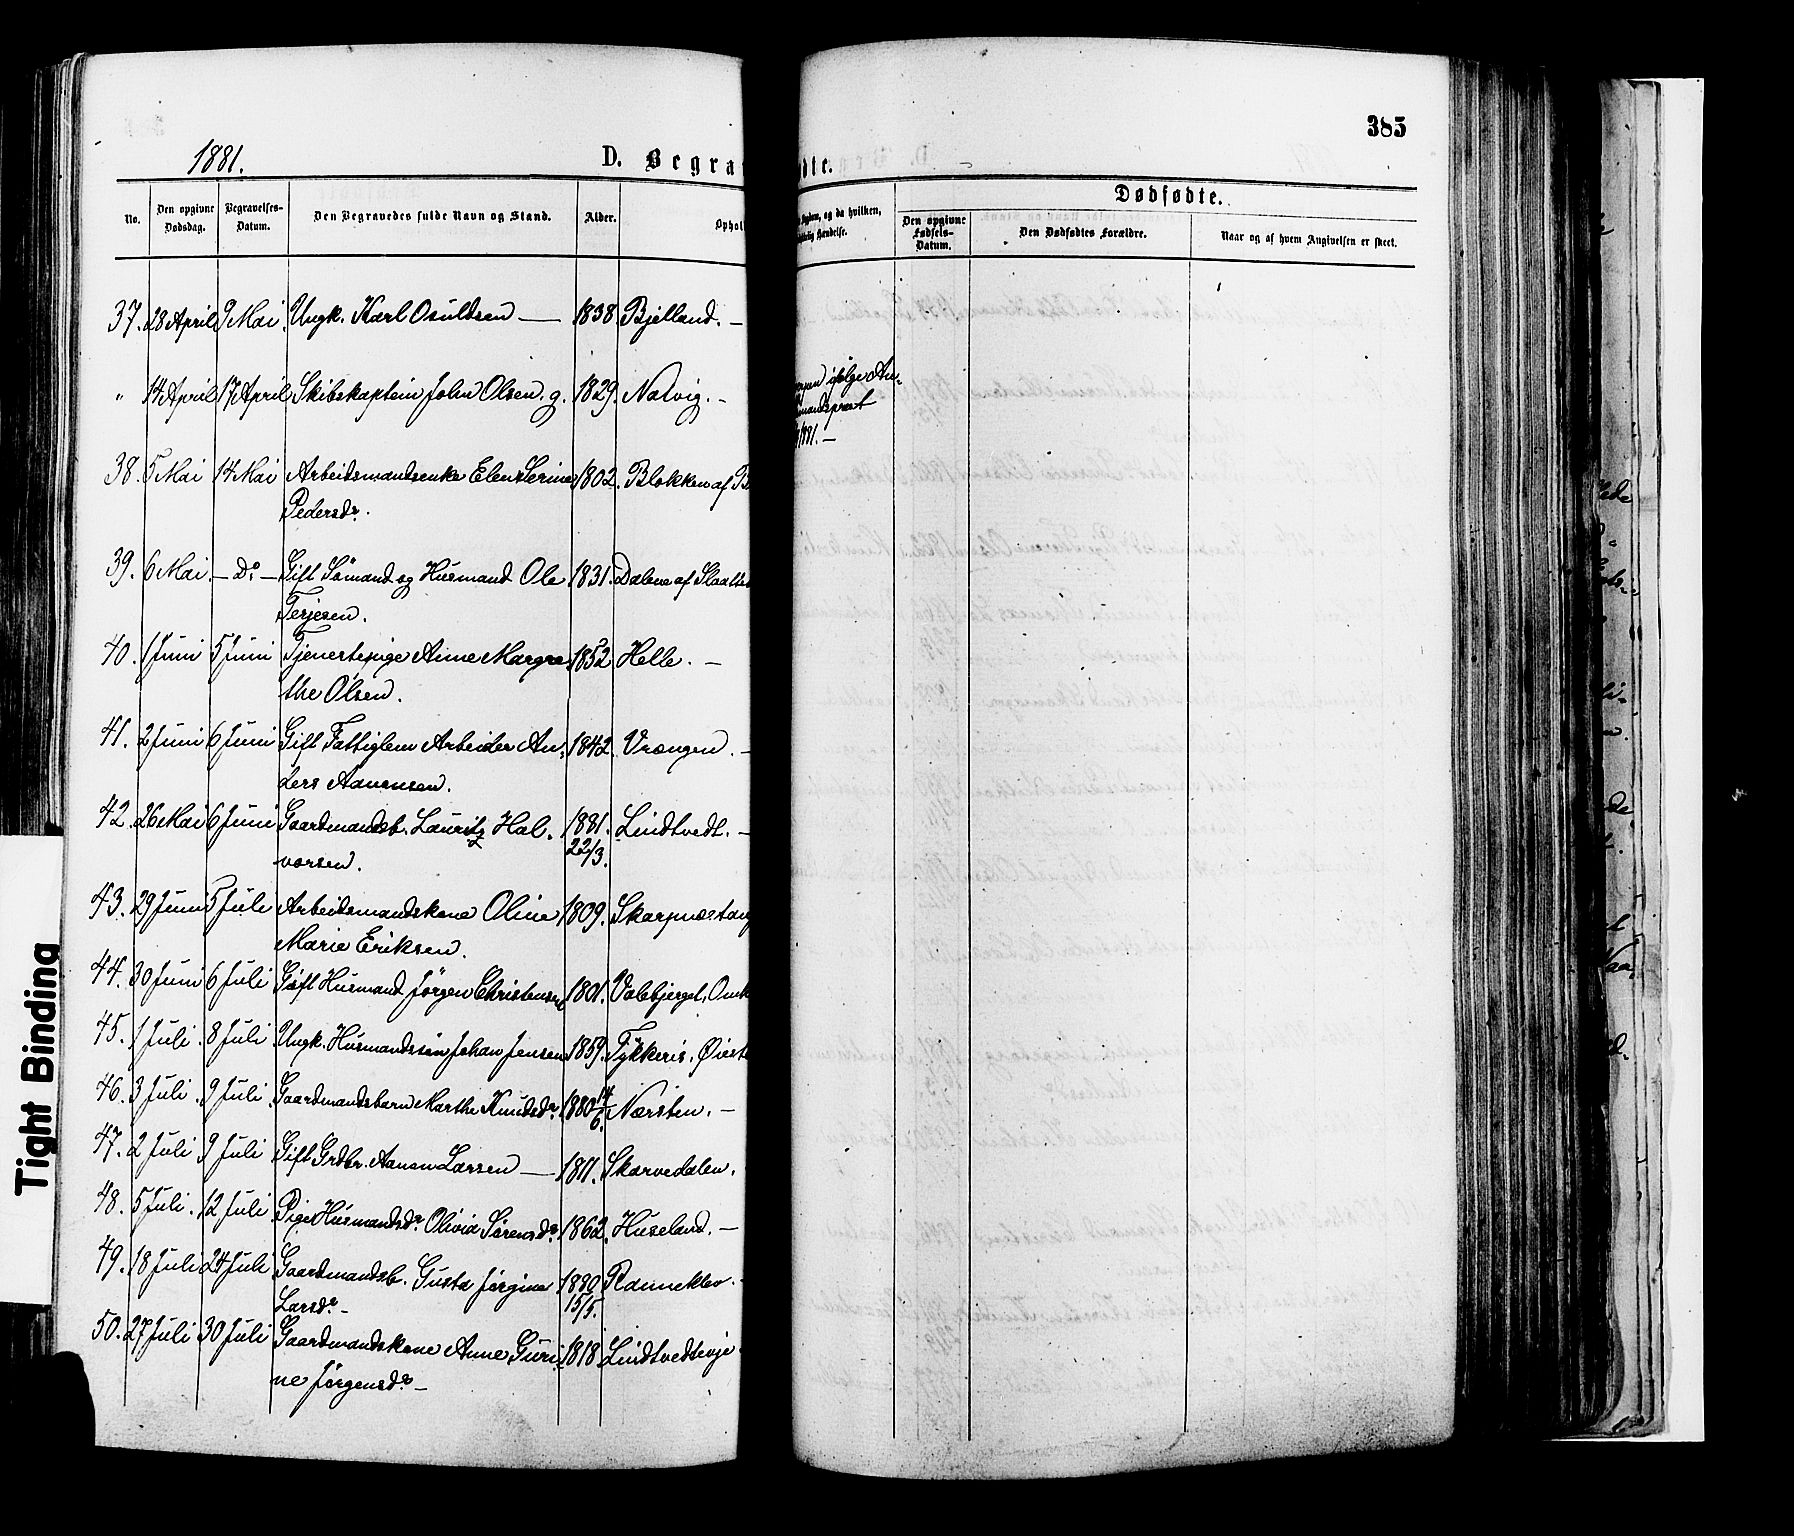 383
1881.
D. Begra
dte.
Dødfødte.
No.
Den opgivne Dødsdag.
Begravelses-Datum.
Den Begravedes fulde Navn og Stand.
Alder.
Ophol
og da hvilken,
Den opgivne Fødsels-Datum.
Den Dødfødtes Forældre.
Naar og af hvem Angivelsen er skeet.
37. 28 April 9 Mai. Ungk. Karl Osuldsen — 1838. Bjelland. —
" 14 April 17 April Skibskaptein John Olsen. g. 1829. Natvig. —
ifølge An-
1881. —
38. 5 Mai 14 Mai Arbeidsmandsenke Elen Serine 1802. Blokken af B
Pedersdr.
39. 6 Mai. — Do. — Gift Sømand og Husmand Ole 1831. Dalene af Slaatte
Terjesen.
40. 1 Juni 5 Juni Tjenestepige Anne Margre- 1852 Helle. —
the Olsen.
41. 2 Juni 6 Juni Gift Fattiglem Arbeider An- 1842. Vrængen. —
ders Aanensen.
42. 26 Mai 6 Juni Gaardmandsb. Lauritz Hal- 1881. Lindtvedt. —
vorsen. 22/3.
43. 29 Juni 5 Juli Arbeidsmandskone Oline 1809. Skarpnæstang
Marie Eriksen.
44. 30 Juni 6 Juli Gift Husmand Jørgen Christensen 1801. Valebjerget,
45. 1 Juli. 8 Juli Ungk. Husmandssøn Johan Jensen 1859. Tykkeris, Øieste
46. 3 Juli. 9 Juli. Gaardmandsbarn Marthe Knudsdr. 1880 14/6. Næsten. —
47. 2 Juli 9 Juli Gift Grdbr. Aanen Larsen — 1811. Skarvedalen.
48. 5 Juli. 12 Juli. Pige Husmandsdr. Olivia Sørensdr. 1862. Huseland. —
49. 18 Juli 24 Juli Gaardmandsb. Gusta Jørgine 1880 Ranneklev. —
Larsdr. — 15/5.
50. 27 Juli 30 Juli Gaardmandskone Anne Guri- 1818 Lindtvedtevje
ne Jørgensdr. —
Tight Binding